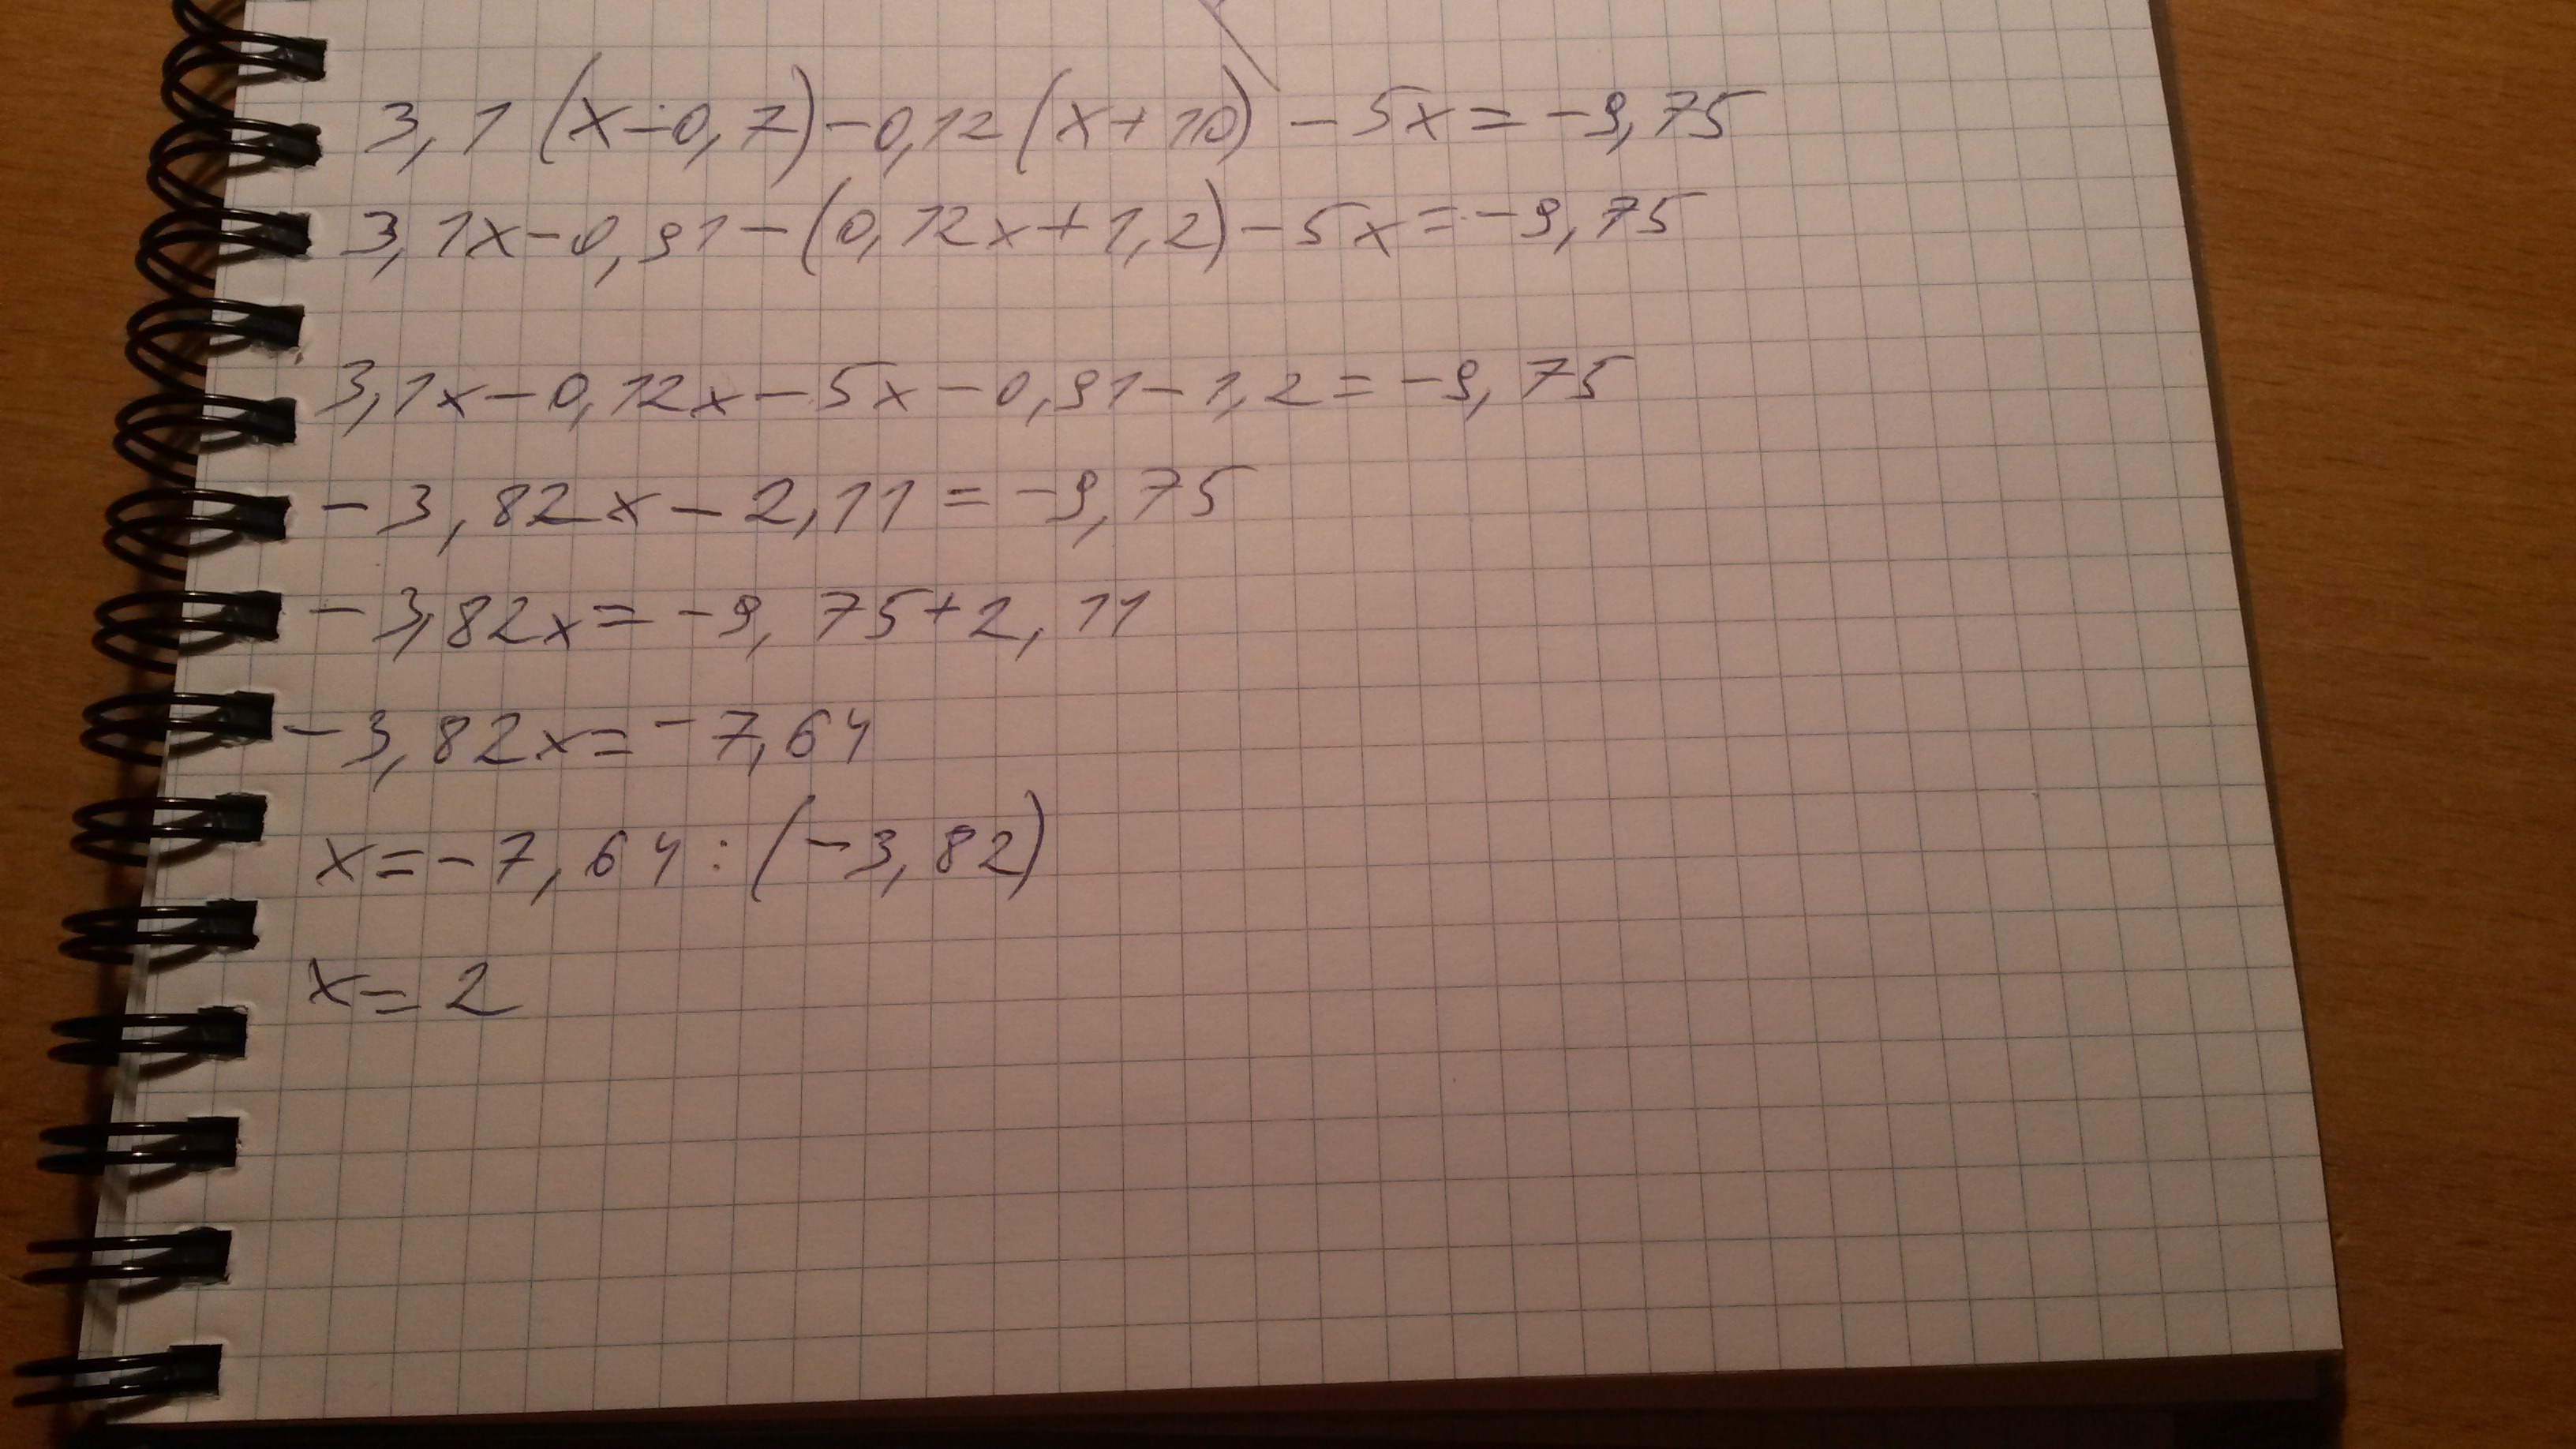 3,1(x-0,7)-0,12(x+10)-5x=-9,75
3,1x-0,91-(0,12x+1,2)-5x=-9,75
3,1x-0,12x-5x-0,91-1,2=-9,75
-3,82x-2,11=-9,75
-3,82x=-9,75+2,11
-3,82x=-7,64
x=-7,64:(-3,82)
x=2